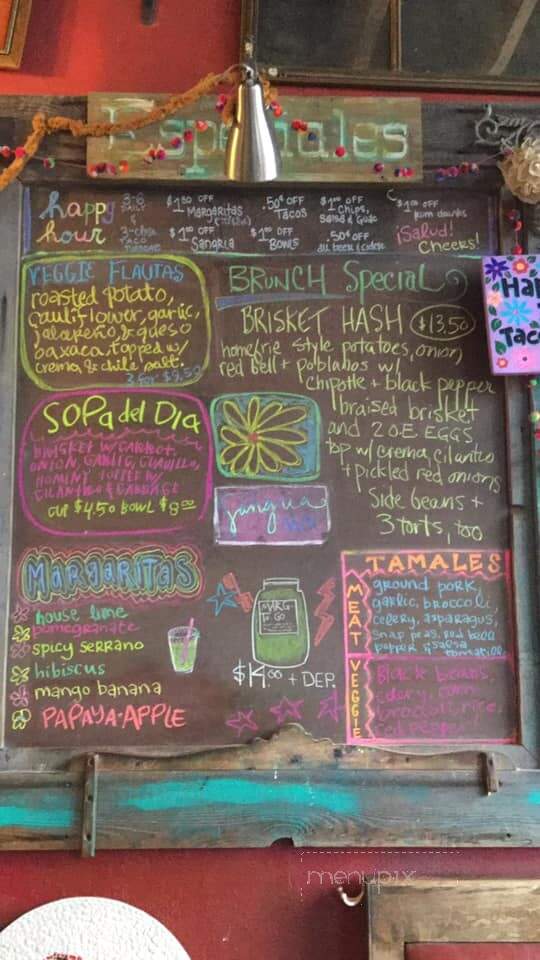 Especiales
happy
hour
$1.50 OFF
Margaritas
.50¢ OFF
Tacos
$1.00 OFF
Chips,
Salsa & Guac
$1.00 OFF
rum drinks
$1.00 OFF
SANGRIA
$1.00 OFF
BOWLS
.50¢ OFF
all beer & cider
¡Salud!
Cheers!
VEGGIE FLAUTAS
roasted potato,
cauliflower, garlic,
jalapeño, & queso
oaxaca, topped w/
crema & chile salt.
3 for $9.50
BRUNCH Special
BRISKET HASH $13.50
homefrie style potatoes, onion,
red bell + poblanos w/
chipotle + black pepper
braised brisket
and 2 O.E. EGGS
top w/ crema, cilantro
+ pickled red onions
Side beans +
3 torts, too
SOPA del DIA
BRISKET W/ CARROT,
ONION, GARLIC, GUAJILLO,
HOMINY TOPPED W/
CILANTRO & CABBAGE
CUP $4.50 BOWL $8.00
MARGARITAS
house lime
pomegranate
spicy serrano
hibiscus
mango banana
PAPAYA-APPLE
MARG
TO GO
$14.00 + DEP.
TAMALES
MEAT
ground pork,
garlic, broccoli,
celery, asparagus,
snap peas, red bell
pepper & salsa
tomatillo
VEGGIE
Black beans,
celery, corn,
broccoli, rice,
Taco
menupix